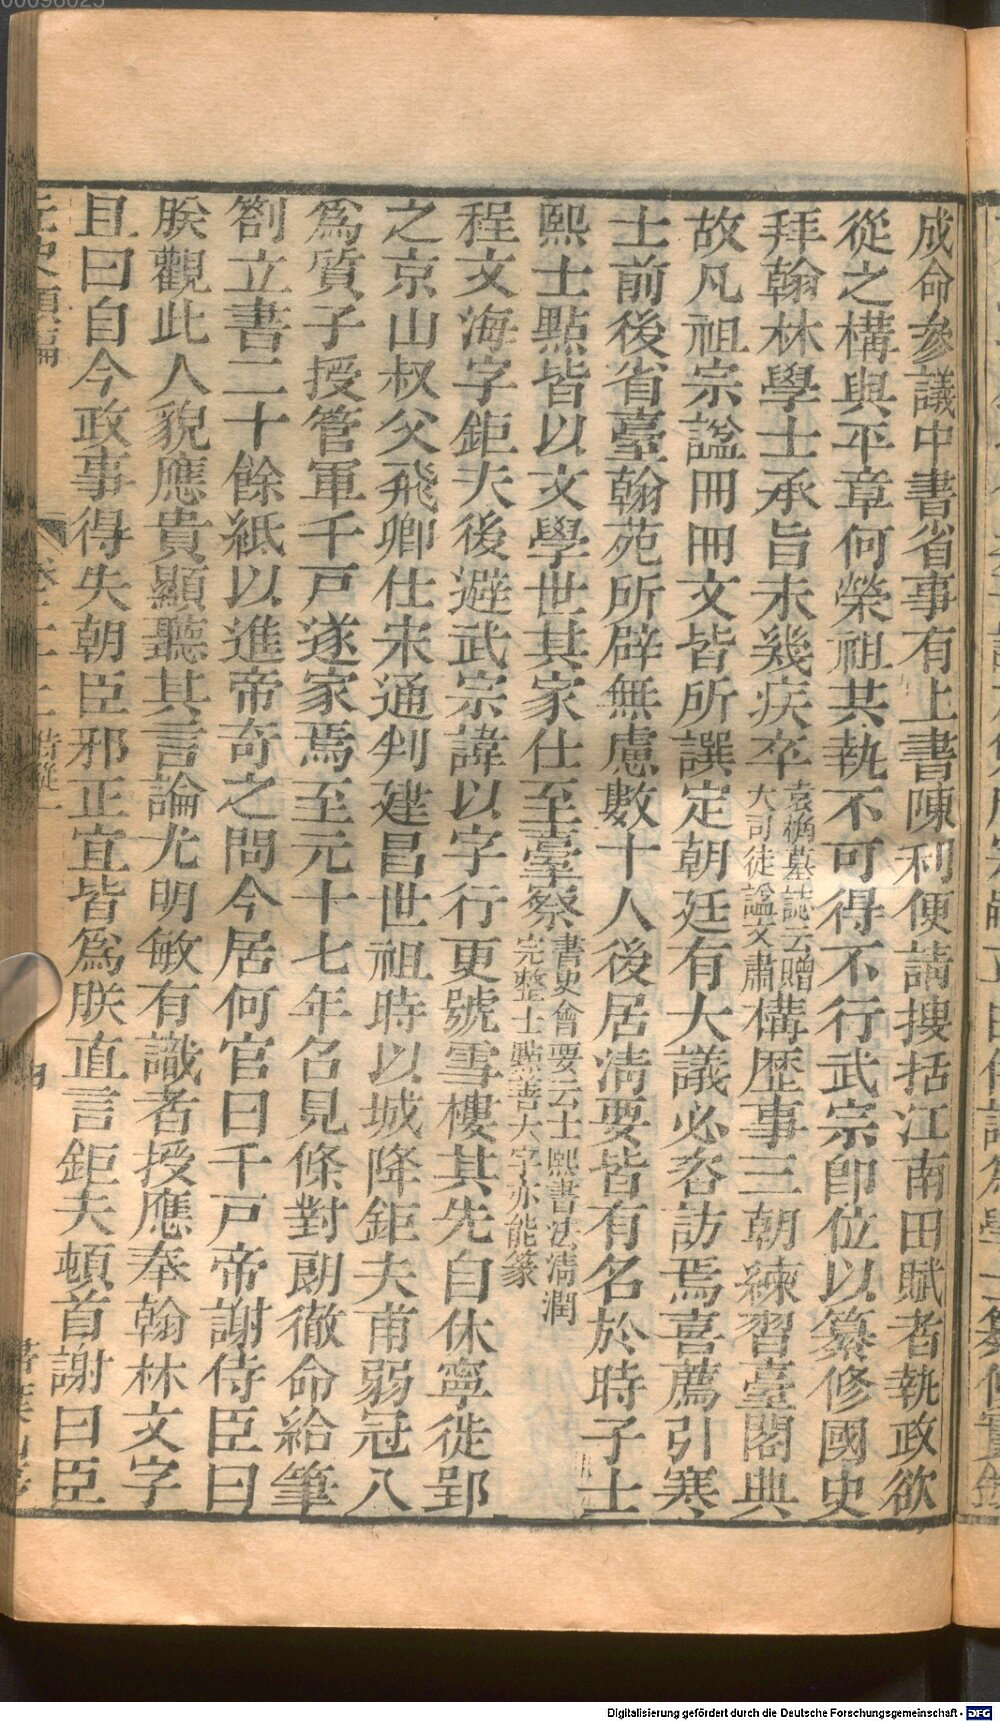 成命參議中書省事有上書陳利便請搜括江南田賦者執政欲
從之構與平章何榮祖共執不可得不行武宗即位以纂修國史
拜翰林學士承旨未幾疾卒袁桷墓誌云贈大司徒諡文肅構歷事三朝練習臺閣典
故凡祖宗諡冊冊文皆所譔定朝廷有大議必咨訪焉喜薦引寒
士前後省臺翰苑所辟無慮數十人後居清要皆有名於時子士
熙士點皆以文學世其家仕至臺察書史會要云士熙書法清潤完整士點善大字亦能篆
程文海字鉅夫後避武宗諱以字行更號雪樓其先自休寧徙郢
之京山叔父飛卿仕宋通判建昌世祖時以城降鉅夫甫弱冠入
爲質子授管軍千戸遂家焉至元十七年召見條對朗徹命給筆
劄立書二十餘紙以進帝奇之問今居何官曰千戸帝謝侍臣曰
朕觀此人貌應貴顯聽其言論尤明敏有識者授應奉翰林文字
且曰自今政事得失朝臣邪正宜皆爲朕直言鉅夫頓首謝曰臣
元史類編
Digitalisierung gefördert durch die Deutsche Forschungsgemeinschaft - DFG